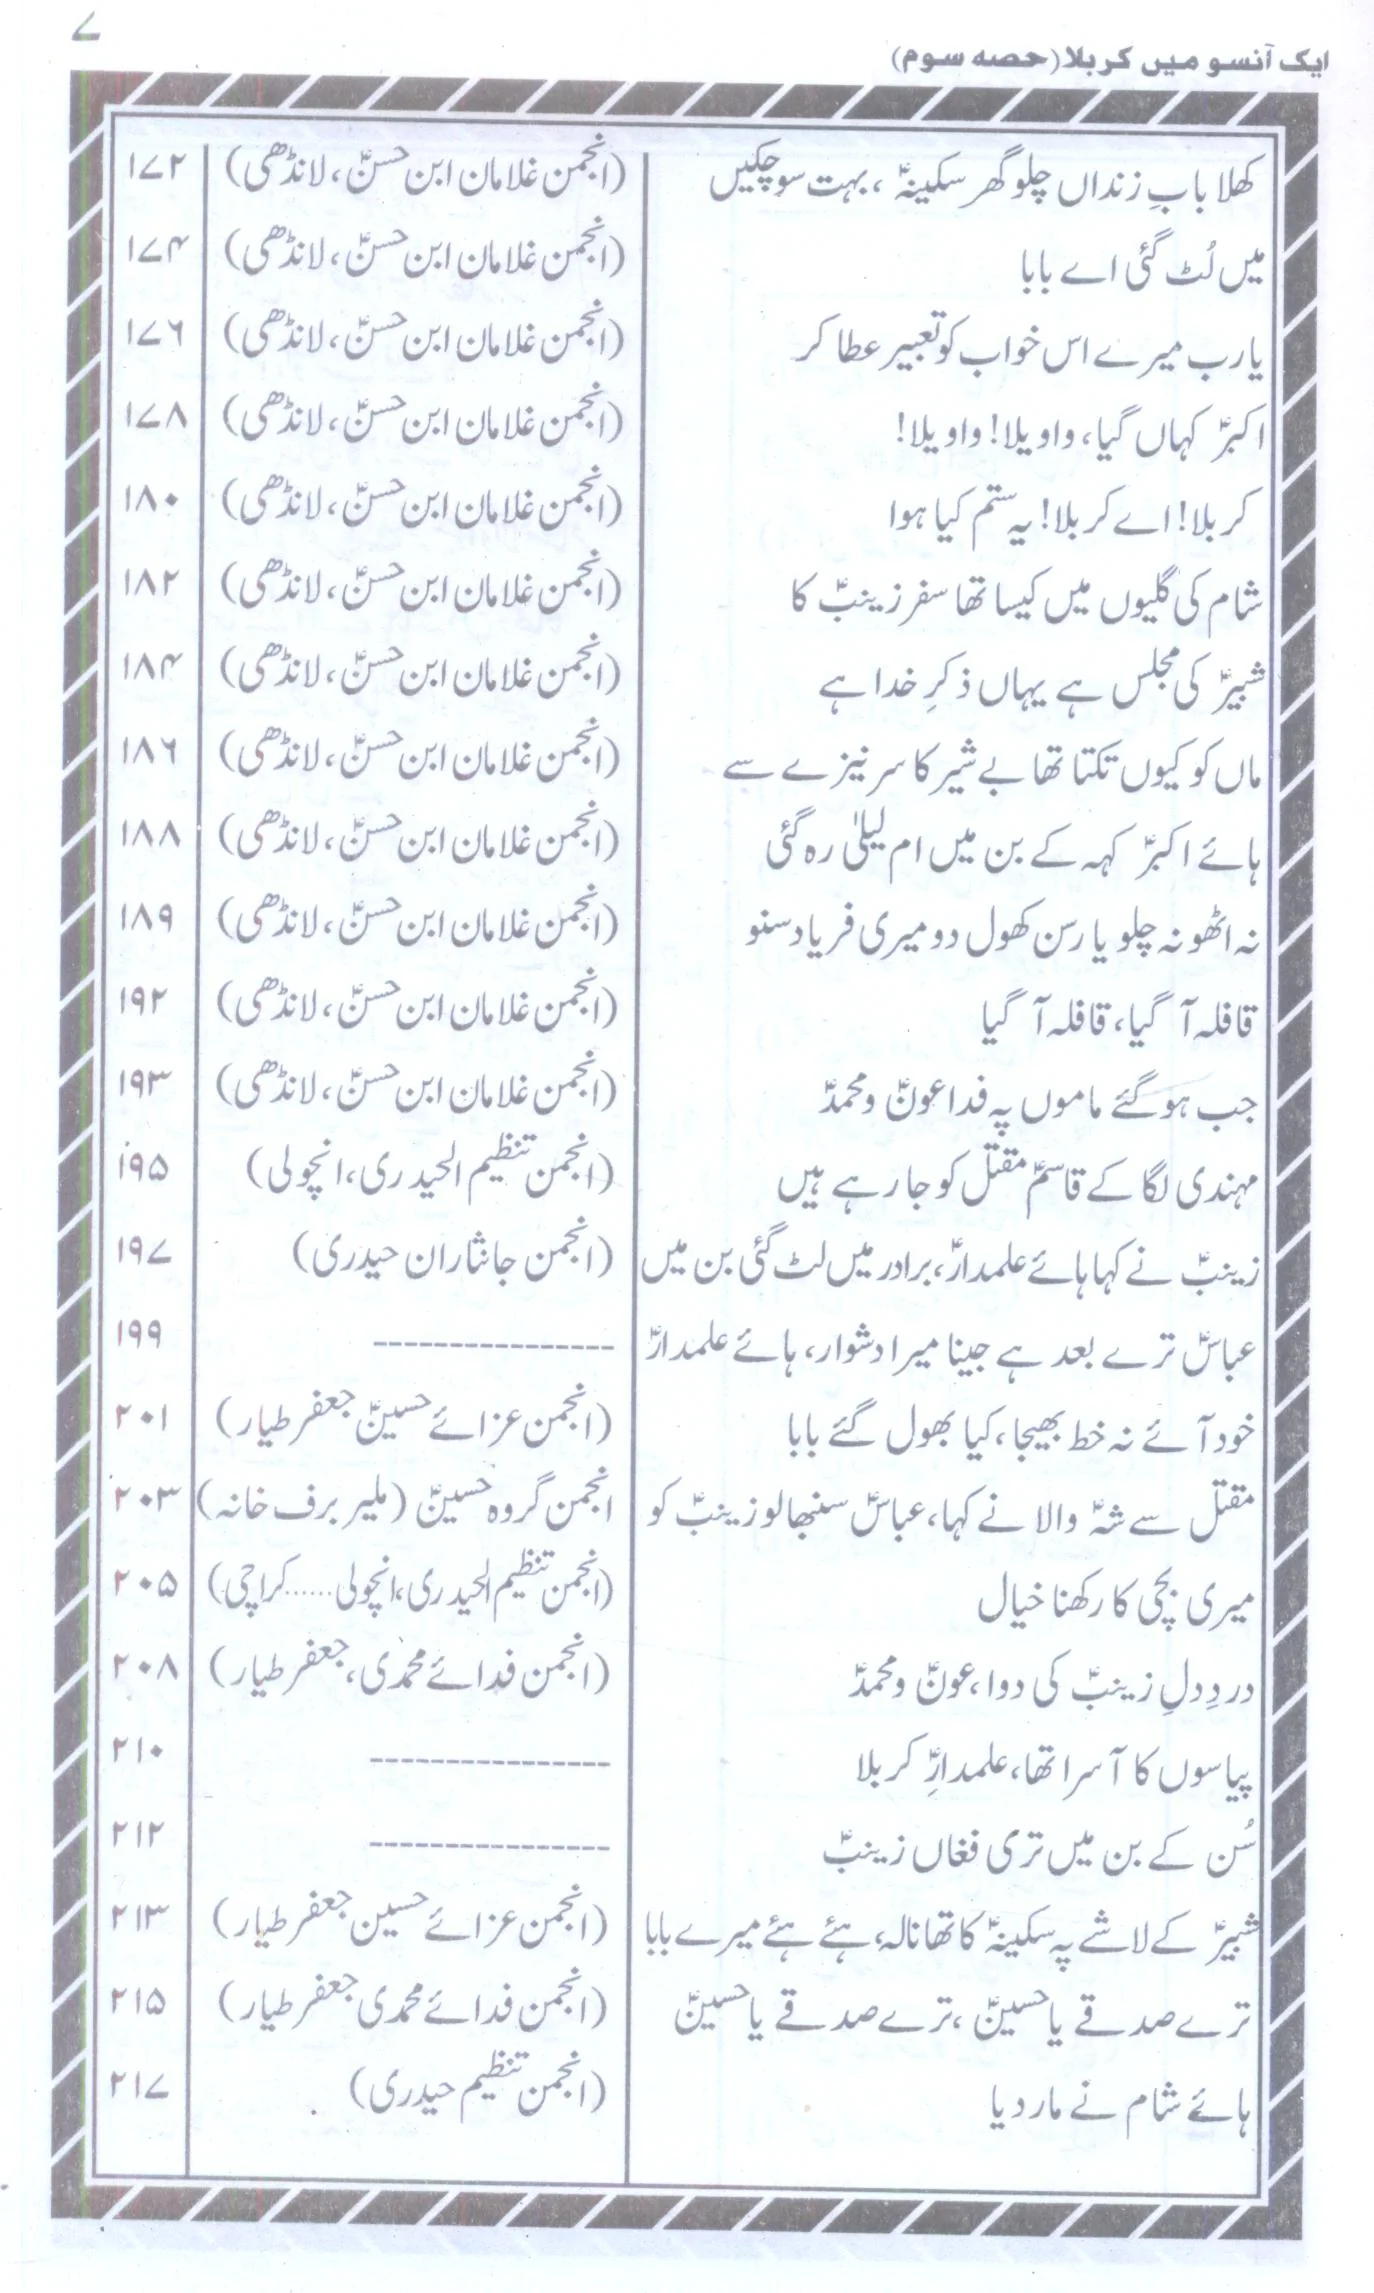 ایک آنسو میں کربلا (حصہ سوم) ۷
کھلا بابِ زنداں چلو گھر سکینہؑ ، بہت سو چکیں (انجمن غلامان ابن حسنؑ، لانڈھی) ۱۷۲
میں لُٹ گئی اے بابا (انجمن غلامان ابن حسنؑ، لانڈھی) ۱۷۴
یارب میرے اس خواب کو تعبیر عطا کر (انجمن غلامان ابن حسنؑ، لانڈھی) ۱۷۶
اکبرؑ کہاں گیا، واویلا! واویلا! (انجمن غلامان ابن حسنؑ، لانڈھی) ۱۷۸
کربلا! اے کربلا! یہ ستم کیا ہوا (انجمن غلامان ابن حسنؑ، لانڈھی) ۱۸۰
شام کی گلیوں میں کیسا تھا سفر زینبؑ کا (انجمن غلامان ابن حسنؑ، لانڈھی) ۱۸۲
شبیرؑ کی مجلس ہے یہاں ذکرِ خدا ہے (انجمن غلامان ابن حسنؑ، لانڈھی) ۱۸۴
ماں کو کیوں تکتا تھا بے شیر کا سر نیزے سے (انجمن غلامان ابن حسنؑ، لانڈھی) ۱۸۶
ہائے اکبرؑ کہہ کے بن میں ام لیلیٰ رہ گئی (انجمن غلامان ابن حسنؑ، لانڈھی) ۱۸۸
نہ اٹھو نہ چلو یا رسن کھول دو میری فریاد سنو (انجمن غلامان ابن حسنؑ، لانڈھی) ۱۸۹
قافلہ آ گیا، قافلہ آ گیا (انجمن غلامان ابن حسنؑ، لانڈھی) ۱۹۲
جب ہو گئے ماموں پہ فدا عونؑ و محمدؑ (انجمن غلامان ابن حسنؑ، لانڈھی) ۱۹۳
مہندی لگا کے قاسمؑ مقتل کو جا رہے ہیں (انجمن تنظیم الحیدری، انچولی) ۱۹۵
زینبؑ نے کہا ہائے علمدارؑ، برادر میں لٹ گئی بن میں (انجمن جانثاران حیدری) ۱۹۷
عباسؑ ترے بعد ہے جینا میرا دشوار، ہائے علمدارؑ ---------------- ۱۹۹
خود آئے نہ خط بھیجا، کیا بھول گئے بابا (انجمن عزائے حسینؑ جعفر طیار) ۲۰۱
مقتل سے شہؑ والا نے کہا، عباسؑ سنبھالو زینبؑ کو انجمن گروہ حسینؑ (ملیر برف خانہ) ۲۰۳
میری بچی کا رکھنا خیال (انجمن تنظیم الحیدری، انچولی......کراچی) ۲۰۵
دردِ دلِ زینبؑ کی دوا، عونؑ و محمدؑ (انجمن فدائے محمدی، جعفر طیار) ۲۰۸
پیاسوں کا آسرا تھا، علمدارِؑ کربلا ---------------- ۲۱۰
سُن کے بن میں تری فغاں زینبؑ ---------------- ۲۱۲
شبیرؑ کے لاشے پہ سکینہؑ کا تھا نالہ، ہئے ہئے میرے بابا (انجمن عزائے حسین جعفر طیار) ۲۱۳
ترے صدقے یا حسینؑ ، ترے صدقے یا حسینؑ (انجمن فدائے محمدی جعفر طیار) ۲۱۵
ہائے شام نے مار دیا (انجمن تنظیم حیدری) ۲۱۷